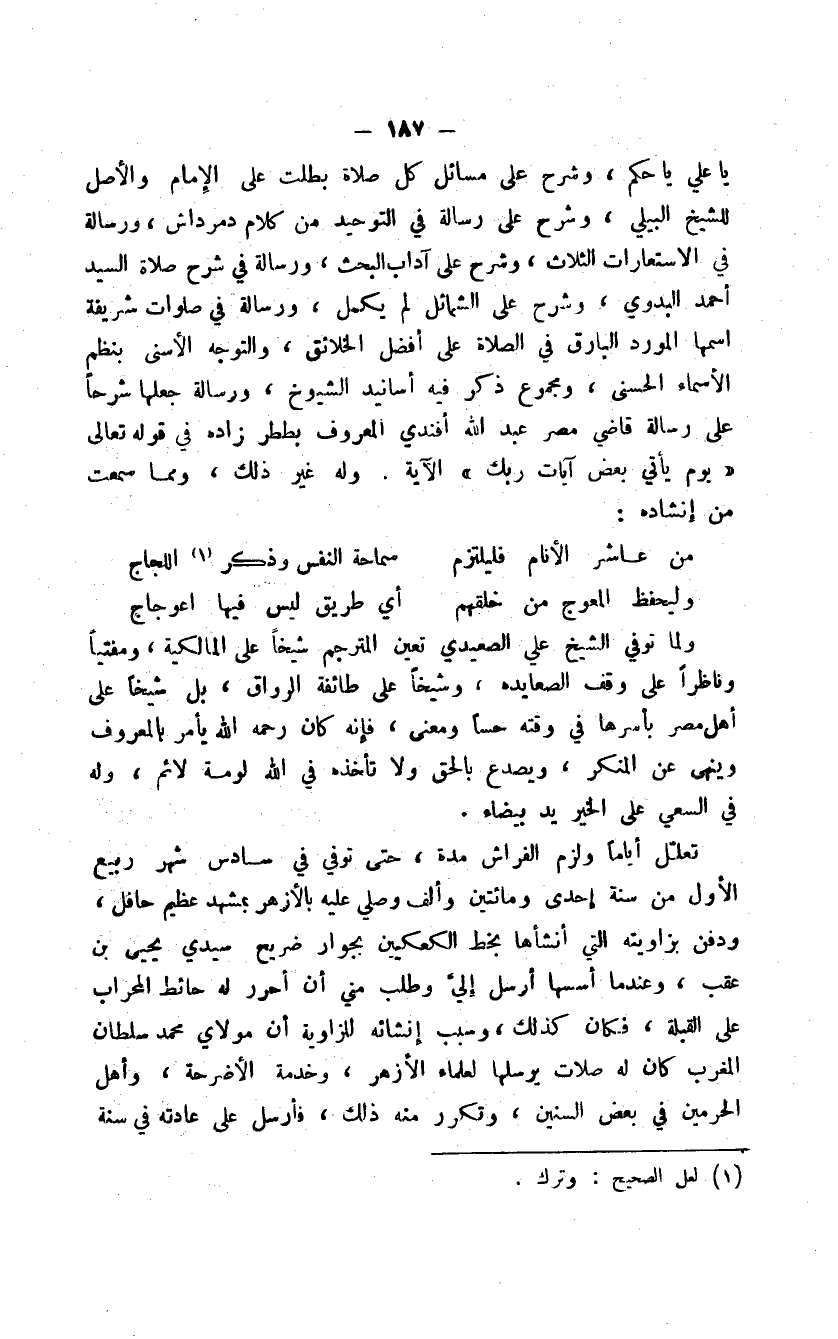 — ١٨٧ —
يا علي يا حكم ، وشرح على مسائل كل صلاة بطلت على الإمام والأصل
للشيخ البيلي ، وشرح على رسالة في التوحيد من كلام دمرداش ، ورسالة
في الاستعارات الثلاث ، وشرح على آداب البحث ، ورسالة في شرح صلاة السيد
أحمد البدوي ، وشرح على الشمائل لم يكمل ، ورسالة في صلوات شريفة
اسمها المورد البارق في الصلاة على أفضل الخلائق ، والتوجه الأسنى بنظم
الأسماء الحسنى ، ومجموع ذكر فيه أسانيد الشيوخ ، ورسالة جعلها شرحاً
على رسالة قاضي مصر عبد الله أفندي المعروف بططر زاده في قوله تعالى
« يوم يأتي بعض آيات ربك » الآية . وله غير ذلك ، ومما سمعت
من إنشاده :
من عاشر الأنام فليلتزم سماحة النفس وذكر (١) اللجاج
وليحفظ المعوج من خلقهم أي طريق ليس فيها اعوجاج
ولما توفي الشيخ علي الصعيدي تعين المترجم شيخاً على المالكية ، ومفتياً
وناظراً على وقف الصعايده ، وشيخاً على طائفة الرواق ، بل شيخاً على
أهل مصر بأسرها في وقته حساً ومعنى ، فإنه كان رحمه الله يأمر بالمعروف
وينهى عن المنكر ، ويصدع بالحق ولا تأخذه في الله لومة لائم ، وله
في السعي على الخير يد بيضاء .
تعلل أياماً ولزم الفراش مدة ، حتى توفي في سادس شهر ربيع
الأول من سنة إحدى ومائتين وألف وصلي عليه بالأزهر بمشهد عظيم حافل ،
ودفن بزاويته التي أنشأها بخط الكعكيين بجوار ضريح سيدي يحيى بن
عقب ، وعندما أسسها أرسل إليّ وطلب مني أن أحرر له حائط المحراب
على القبلة ، فكان كذلك ، وسبب إنشائه للزاوية أن مولاي محمد سلطان
المغرب كان له صلات يوسلها لعلماء الأزهر ، وخدمة الأضرحة ، وأهل
الحرمين في بعض السنين ، وتكرر منه ذلك ، فأرسل على عادته في سنة
(١) لعل الصحيح : وترك .